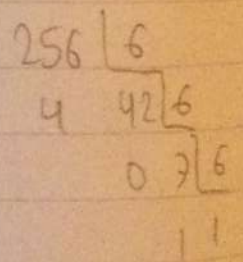 256 6
4 42 6
0 7 6
1 1